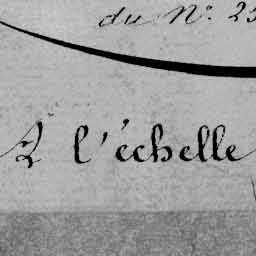 du N° 25
A l'échelle